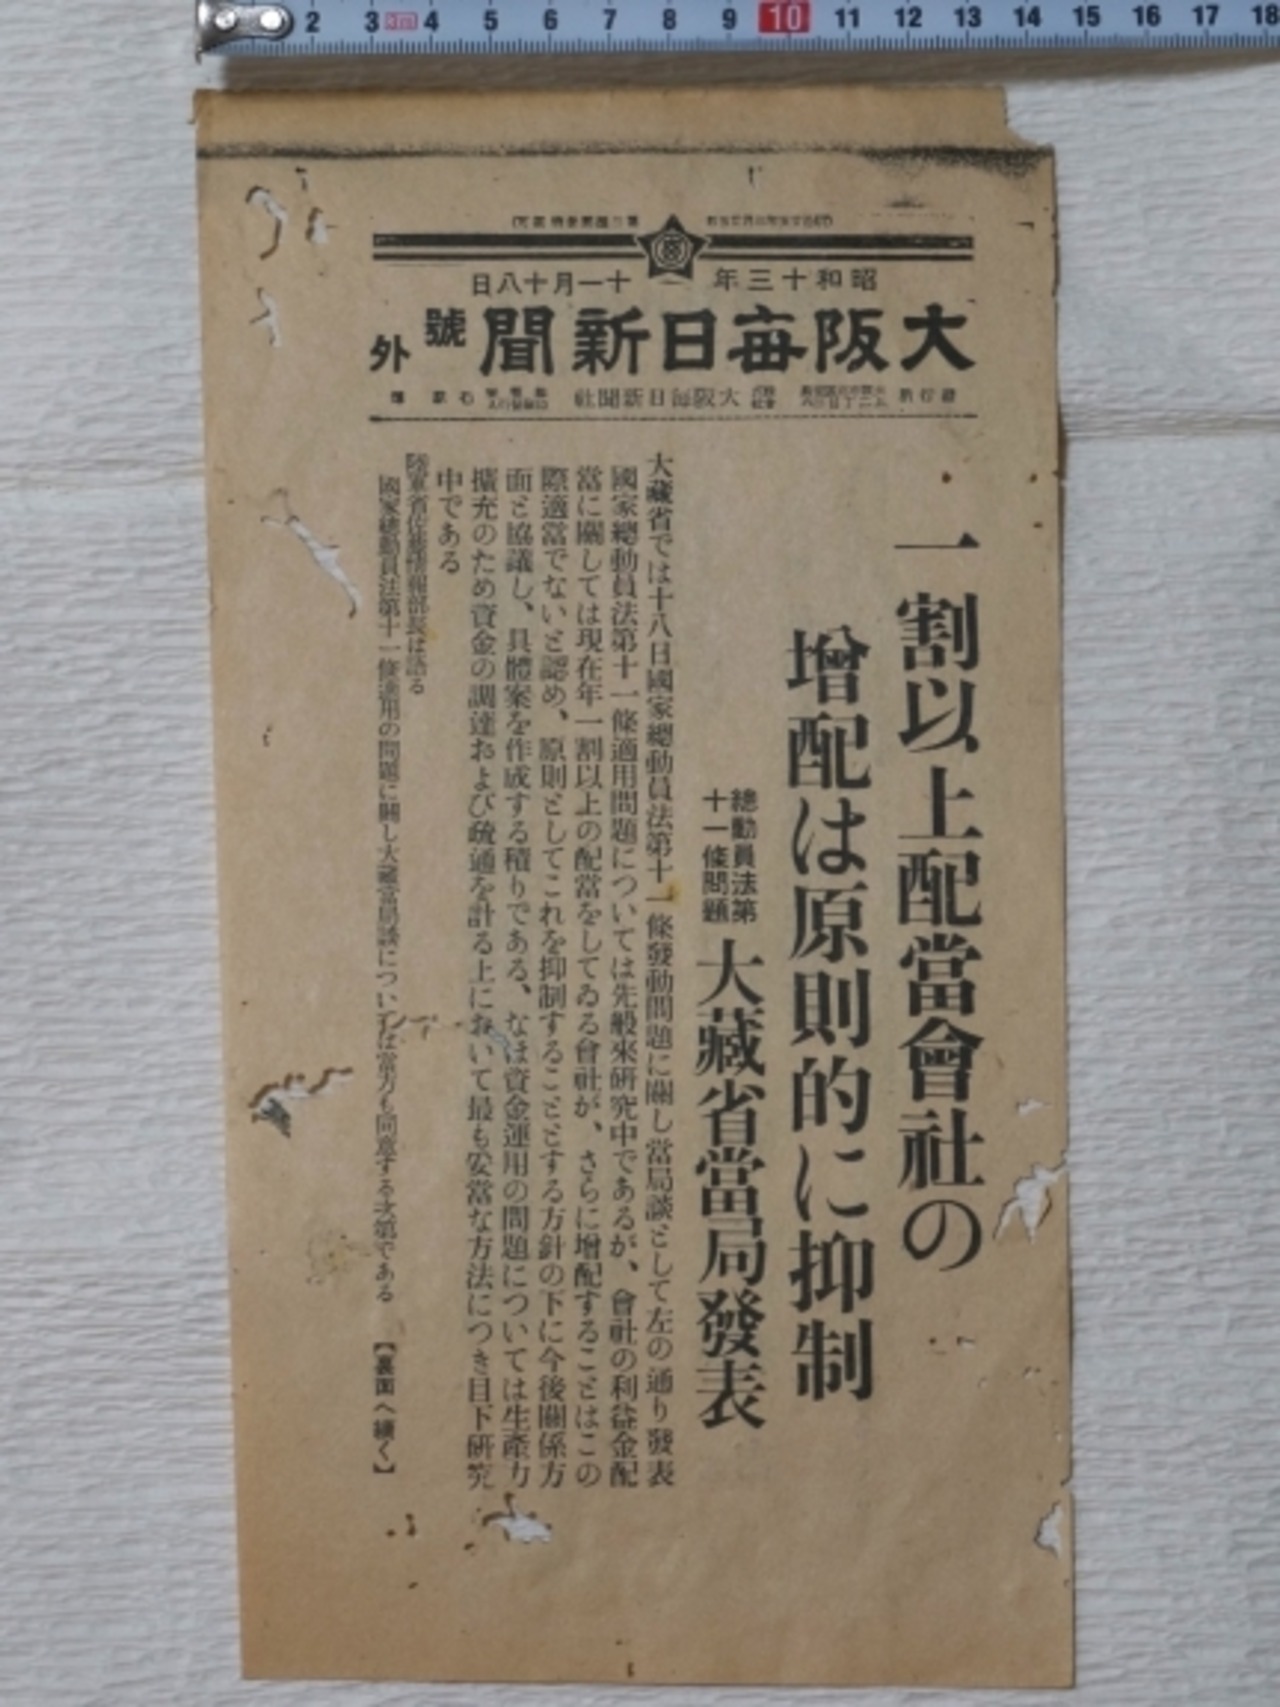 2 3 3m 4 5 6 7 8 9 10 11 12 13 14 15 16 17 18
昭和十三年十一月十八日
大阪每日新聞號外
大阪每日新聞社
一割以上配當會社の
增配は原則的に抑制
總動員法第
十一條問題
大藏省當局發表
大藏省では十八日國家總動員法第十一條發動問題に關し當局談として左の通り發表
國家總動員法第十一條適用問題については先般來研究中であるが、會社の利益金配
當に關しては現在年一割以上の配當をしてゐる會社が、さらに增配することはこの
際適當でないと認め、原則としてこれを抑制することとする方針の下に今後關係方
面と協議し、具體案を作成する積りである、なほ資金運用の問題については生產力
擴充のため資金の調達および疏通を計る上において最も妥當な方法につき目下研究
中である
陸軍省佐藤情報部長は語る
國家總動員法第十一條適用の問題に關し大藏當局談については當方も同意する次第である
【裏面へ續く】